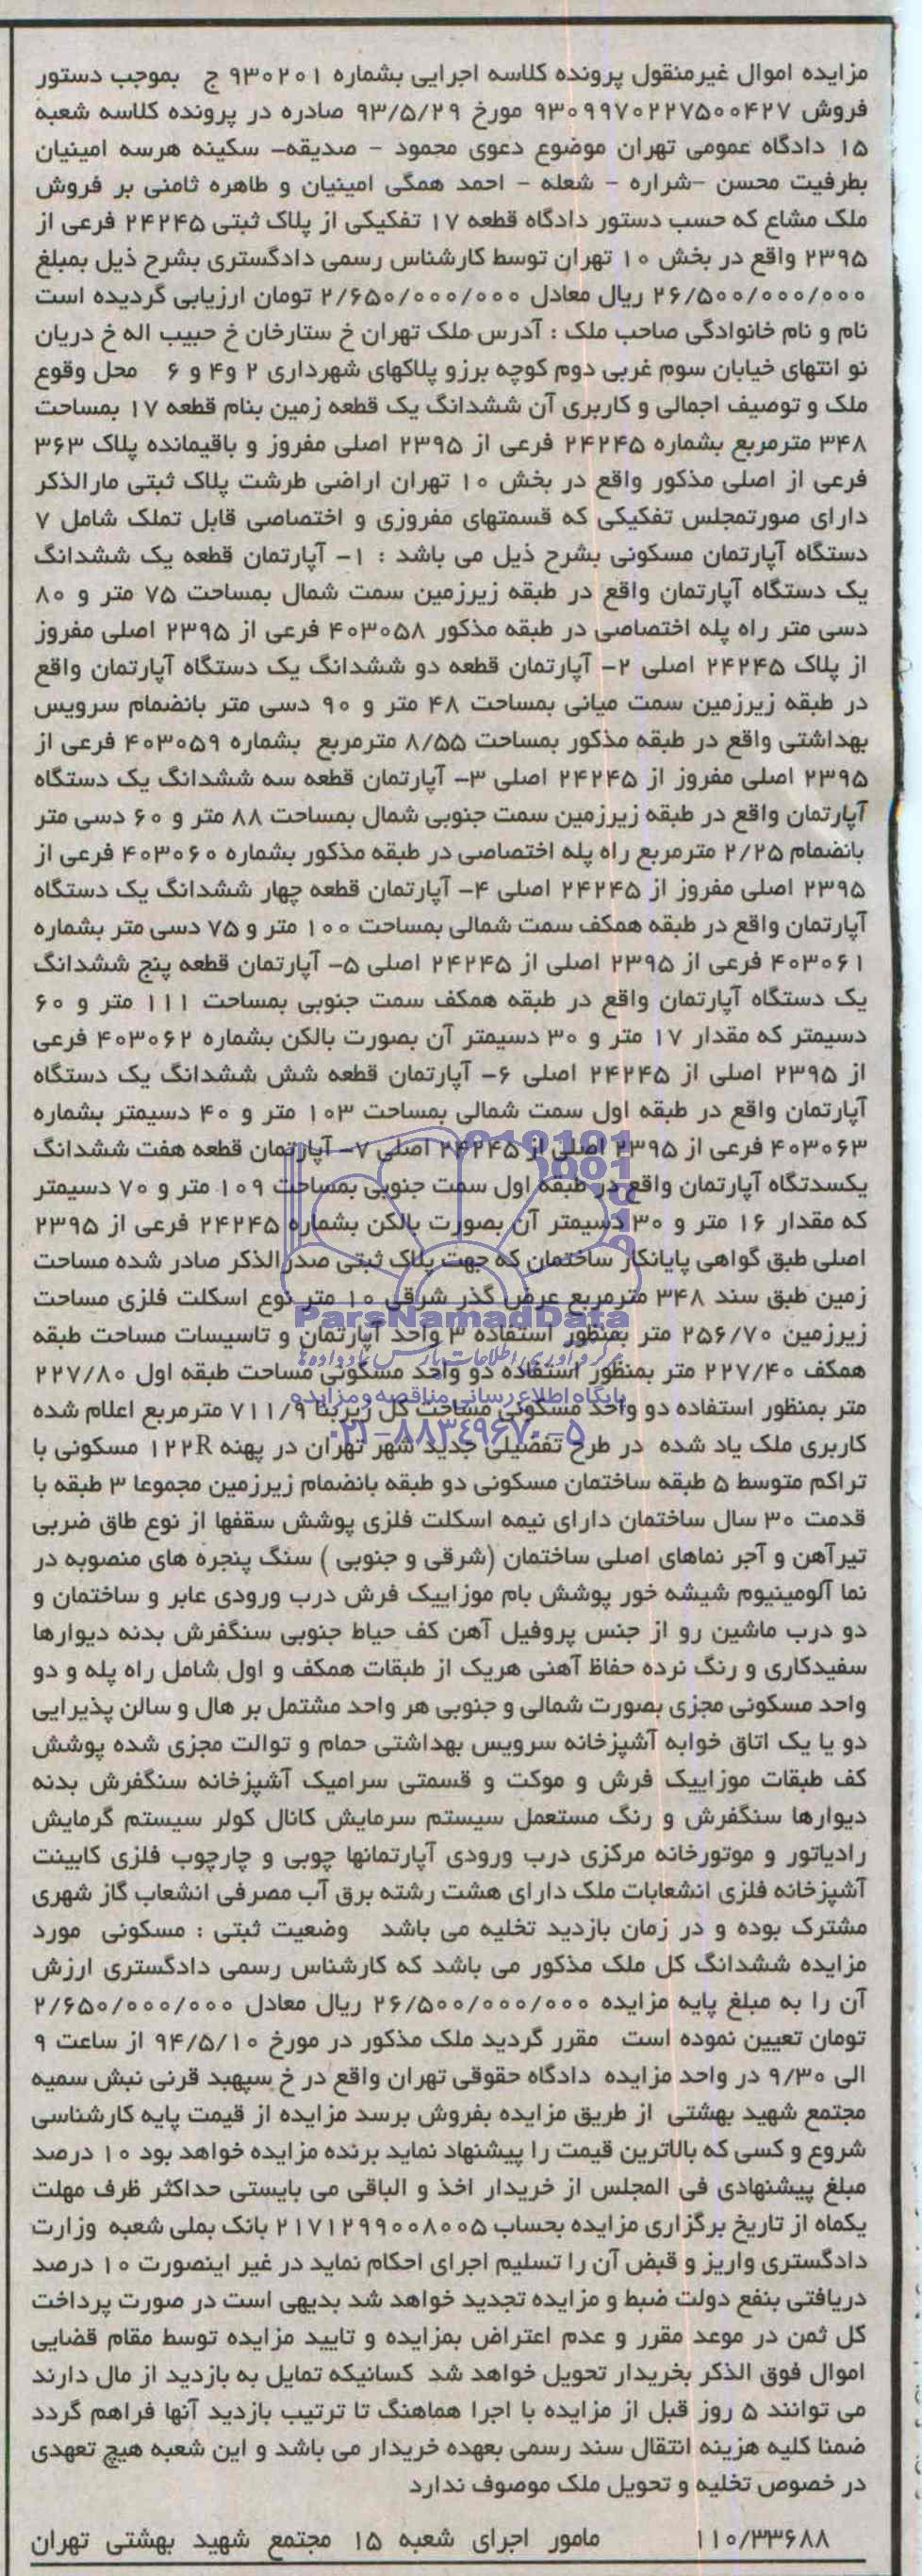 مزایده اموال غیرمنقول پرونده کلاسه اجرایی بشماره ۹۳۰۲۰۱ ج بموجب دستور
فروش ۹۳۰۹۹۷۰۲۲۷۵۰۰۴۲۷ مورخ ۹۳/۵/۲۹ صادره در پرونده کلاسه شعبه
۱۵ دادگاه عمومی تهران موضوع دعوی محمود - صدیقه- سکینه هرسه امینیان
بطرفیت محسن -شراره - شعله - احمد همگی امینیان و طاهره ثامنی بر فروش
ملک مشاع که حسب دستور دادگاه قطعه ۱۷ تفکیکی از پلاک ثبتی ۲۴۲۴۵ فرعی از
۲۳۹۵ واقع در بخش ۱۰ تهران توسط کارشناس رسمی دادگستری بشرح ذیل بمبلغ
۲۶/۵۰۰/۰۰۰/۰۰۰ ریال معادل ۲/۶۵۰/۰۰۰/۰۰۰ تومان ارزیابی گردیده است
نام و نام خانوادگی صاحب ملک : آدرس ملک تهران خ ستارخان خ حبیب اله خ دریان
نو انتهای خیابان سوم غربی دوم کوچه برزو پلاکهای شهرداری ۲ و۴ و ۶ محل وقوع
ملک و توصیف اجمالی و کاربری آن ششدانگ یک قطعه زمین بنام قطعه ۱۷ بمساحت
۳۴۸ مترمربع بشماره ۲۴۲۴۵ فرعی از ۲۳۹۵ اصلی مفروز و باقیمانده پلاک ۳۶۳
فرعی از اصلی مذکور واقع در بخش ۱۰ تهران اراضی طرشت پلاک ثبتی مارالذکر
دارای صورتمجلس تفکیکی که قسمتهای مفروزی و اختصاصی قابل تملک شامل ۷
دستگاه آپارتمان مسکونی بشرح ذیل می باشد : ۱- آپارتمان قطعه یک ششدانگ
یک دستگاه آپارتمان واقع در طبقه زیرزمین سمت شمال بمساحت ۷۵ متر و ۸۰
دسی متر راه پله اختصاصی در طبقه مذکور ۴۰۳۰۵۸ فرعی از ۲۳۹۵ اصلی مفروز
از پلاک ۲۴۲۴۵ اصلی ۲- آپارتمان قطعه دو ششدانگ یک دستگاه آپارتمان واقع
در طبقه زیرزمین سمت میانی بمساحت ۴۸ متر و ۹۰ دسی متر بانضمام سرویس
بهداشتی واقع در طبقه مذکور بمساحت ۸/۵۵ مترمربع بشماره ۴۰۳۰۵۹ فرعی از
۲۳۹۵ اصلی مفروز از ۲۴۲۴۵ اصلی ۳- آپارتمان قطعه سه ششدانگ یک دستگاه
آپارتمان واقع در طبقه زیرزمین سمت جنوبی شمال بمساحت ۸۸ متر و ۶۰ دسی متر
بانضمام ۲/۲۵ مترمربع راه پله اختصاصی در طبقه مذکور بشماره ۴۰۳۰۶۰ فرعی از
۲۳۹۵ اصلی مفروز از ۲۴۲۴۵ اصلی ۴- آپارتمان قطعه چهار ششدانگ یک دستگاه
آپارتمان واقع در طبقه همکف سمت شمالی بمساحت ۱۰۰ متر و ۷۵ دسی متر بشماره
۴۰۳۰۶۱ فرعی از ۲۳۹۵ اصلی از ۲۴۲۴۵ اصلی ۵- آپارتمان قطعه پنج ششدانگ
یک دستگاه آپارتمان واقع در طبقه همکف سمت جنوبی بمساحت ۱۱۱ متر و ۶۰
دسیمتر که مقدار ۱۷ متر و ۳۰ دسیمتر آن بصورت بالکن بشماره ۴۰۳۰۶۲ فرعی
از ۲۳۹۵ اصلی از ۲۴۲۴۵ اصلی ۶- آپارتمان قطعه شش ششدانگ یک دستگاه
آپارتمان واقع در طبقه اول سمت شمالی بمساحت ۱۰۳ متر و ۴۰ دسیمتر بشماره
۴۰۳۰۶۳ فرعی از ۲۳۹۵ اصلی از ۲۴۲۴۵ اصلی ۷- آپارتمان قطعه هفت ششدانگ
یکسدتگاه آپارتمان واقع در طبقه اول سمت جنوبی بمساحت ۱۰۹ متر و ۷۰ دسیمتر
که مقدار ۱۶ متر و ۳۰ دسیمتر آن بصورت بالکن بشماره ۲۴۲۴۵ فرعی از ۲۳۹۵
اصلی طبق گواهی پایانکار ساختمان که جهت پلاک ثبتی صدرالذکر صادر شده مساحت
زمین طبق سند ۳۴۸ مترمربع عرض گذر شرقی ۱۰ متر نوع اسکلت فلزی مساحت
ParsNamadData
زیرزمین ۲۵۶/۷۰ متر بمنظور استفاده ۳ واحد آپارتمان و تاسیسات مساحت طبقه
همکف ۲۲۷/۴۰ متر بمنظور استفاده دو واحد مسکونی مساحت طبقه اول ۲۲۷/۸۰
پایگاه اطلاع رسانی مناقصه و مزایده
متر بمنظور استفاده دو واحد مسکونی مساحت کل زیربنا ۷۱۱/۹ مترمربع اعلام شده
۰۲۱-۸۸۳۴۹۶۷۰-۵
کاربری ملک یاد شده در طرح تفضیلی جدید شهر تهران در پهنه ۱۲۲R مسکونی با
تراکم متوسط ۵ طبقه ساختمان مسکونی دو طبقه بانضمام زیرزمین مجموعا ۳ طبقه با
قدمت ۳۰ سال ساختمان دارای نیمه اسکلت فلزی پوشش سقفها از نوع طاق ضربی
تیرآهن و آجر نماهای اصلی ساختمان (شرقی و جنوبی ) سنگ پنجره های منصوبه در
نما آلومینیوم شیشه خور پوشش بام موزاییک فرش درب ورودی عابر و ساختمان و
دو درب ماشین رو از جنس پروفیل آهن کف حیاط جنوبی سنگفرش بدنه دیوارها
سفیدکاری و رنگ نرده حفاظ آهنی هریک از طبقات همکف و اول شامل راه پله و دو
واحد مسکونی مجزی بصورت شمالی و جنوبی هر واحد مشتمل بر هال و سالن پذیرایی
دو یا یک اتاق خوابه آشپزخانه سرویس بهداشتی حمام و توالت مجزی شده پوشش
کف طبقات موزاییک فرش و موکت و قسمتی سرامیک آشپزخانه سنگفرش بدنه
دیوارها سنگفرش و رنگ مستعمل سیستم سرمایش کانال کولر سیستم گرمایش
رادیاتور و موتورخانه مرکزی درب ورودی آپارتمانها چوبی و چارچوب فلزی کابینت
آشپزخانه فلزی انشعابات ملک دارای هشت رشته برق آب مصرفی انشعاب گاز شهری
مشترک بوده و در زمان بازدید تخلیه می باشد وضعیت ثبتی : مسکونی مورد
مزایده ششدانگ کل ملک مذکور می باشد که کارشناس رسمی دادگستری ارزش
آن را به مبلغ پایه مزایده ۲۶/۵۰۰/۰۰۰/۰۰۰ ریال معادل ۲/۶۵۰/۰۰۰/۰۰۰
تومان تعیین نموده است مقرر گردید ملک مذکور در مورخ ۹۴/۵/۱۰ از ساعت ۹
الی ۹/۳۰ در واحد مزایده دادگاه حقوقی تهران واقع در خ سپهبد قرنی نبش سمیه
مجتمع شهید بهشتی از طریق مزایده بفروش برسد مزایده از قیمت پایه کارشناسی
شروع و کسی که بالاترین قیمت را پیشنهاد نماید برنده مزایده خواهد بود ۱۰ درصد
مبلغ پیشنهادی فی المجلس از خریدار اخذ و الباقی می بایستی حداکثر ظرف مهلت
یکماه از تاریخ برگزاری مزایده بحساب ۲۱۷۱۲۹۹۰۰۸۰۰۵ بانک بملی شعبه وزارت
دادگستری واریز و قبض آن را تسلیم اجرای احکام نماید در غیر اینصورت ۱۰ درصد
دریافتی بنفع دولت ضبط و مزایده تجدید خواهد شد بدیهی است در صورت پرداخت
کل ثمن در موعد مقرر و عدم اعتراض بمزایده و تایید مزایده توسط مقام قضایی
اموال فوق الذکر بخریدار تحویل خواهد شد کسانیکه تمایل به بازدید از مال دارند
می توانند ۵ روز قبل از مزایده با اجرا هماهنگ تا ترتیب بازدید آنها فراهم گردد
ضمنا کلیه هزینه انتقال سند رسمی بعهده خریدار می باشد و این شعبه هیچ تعهدی
در خصوص تخلیه و تحویل ملک موصوف ندارد
۱۱۰/۳۳۶۸۸ مامور اجرای شعبه ۱۵ مجتمع شهید بهشتی تهران